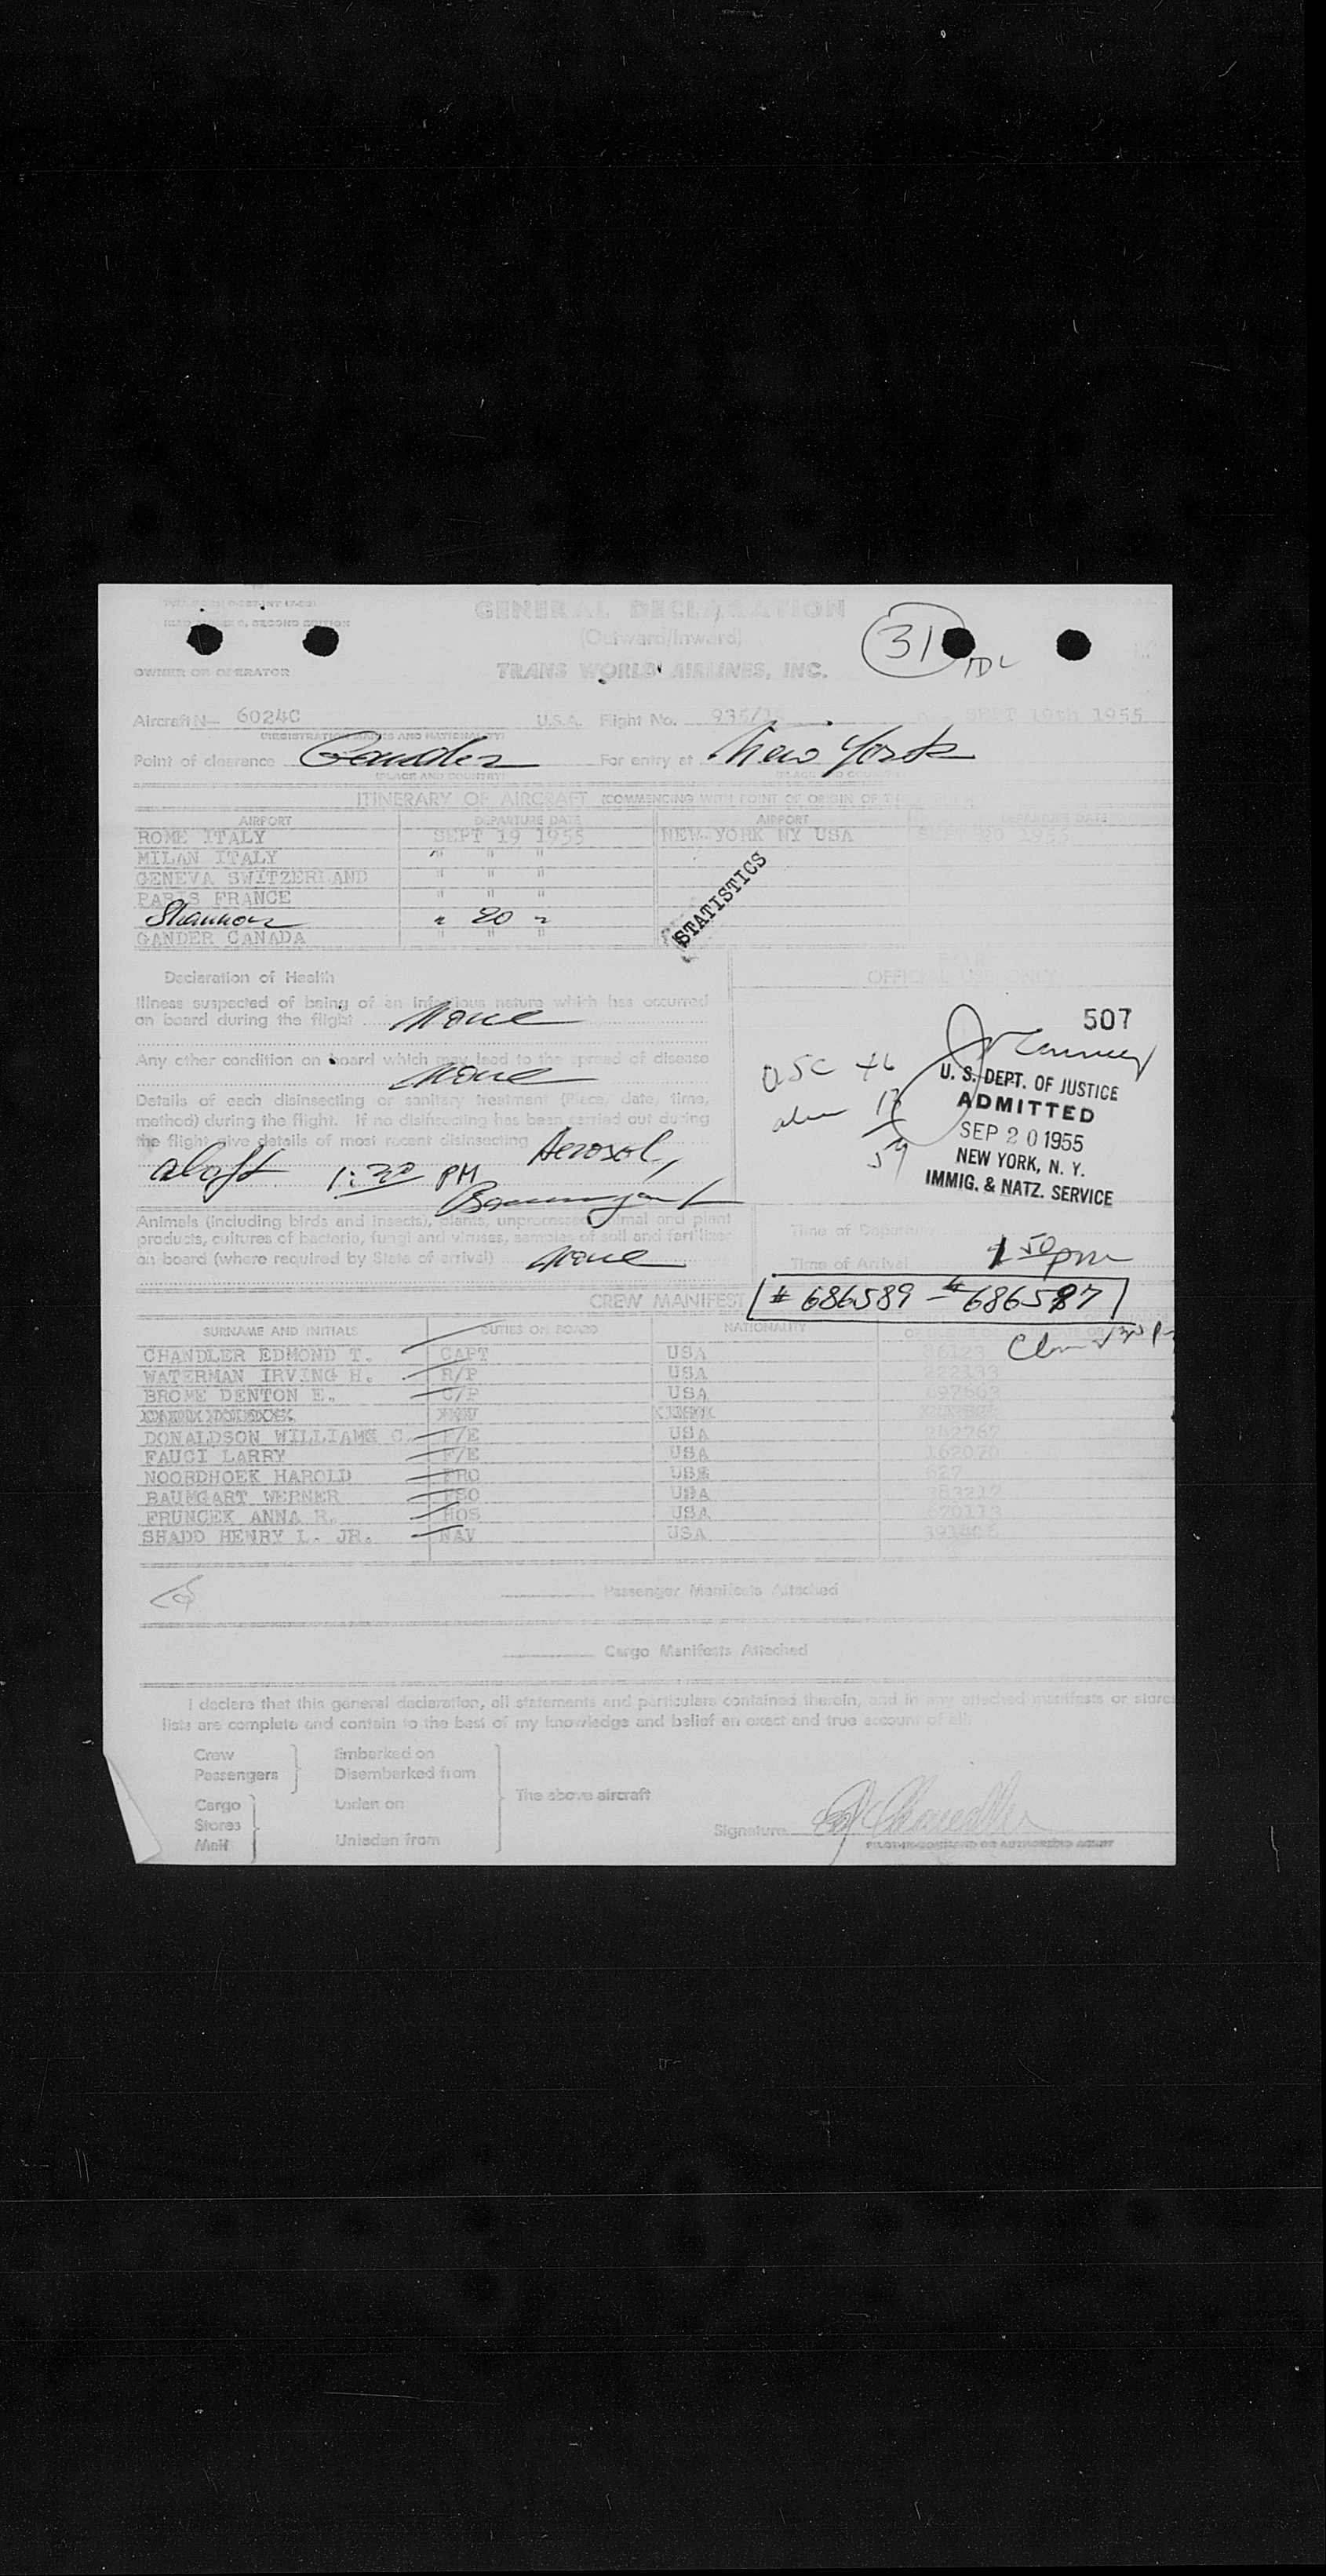 GENERAL DECLARATION
(Outward/Inward)
31
OWNER OR OPERATOR TRANS WORLD AIRLINES, INC.
Aircraft N- 6024C U.S.A. Flight No. 935/ SEPT 19th 1955
(REGISTRATION MARKS AND NATIONALITY)
Point of clearance Gander For entry at New York
(PLACE AND COUNTRY) (PLACE AND COUNTRY)
ITINERARY OF AIRCRAFT (COMMENCING WITH POINT OF ORIGIN OF
AIRPORT DEPARTURE DATE AIRPORT DEPARTURE DATE
ROME ITALY SEPT 19 1955 NEW YORK NY USA 20 1955
MILAN ITALY " " "
GENEVA SWITZERLAND " " "
PARIS FRANCE " " "
Shannon " 20 "
GANDER CANADA " " "
STATISTICS
Declaration of Health
FOR
OFFICIAL USE ONLY
Illness suspected of being of an infectious nature which has occurred
on board during the flight None
507
Any other condition on board which may lead to the spread of disease
None
USC 46
U. S. DEPT. OF JUSTICE
ADMITTED
SEP 20 1955
NEW YORK, N. Y.
IMMIG. & NATZ. SERVICE
Details of each disinsecting or sanitary treatment (Place, date, time,
method) during the flight. If no disinsecting has been carried out during
the flight give details of most recent disinsecting Aerosol,
aloft 1:30 PM
Baumgart
Animals (including birds and insects), plants, unprocessed animal and plant
products, cultures of bacteria, fungi and viruses, samples of soil and fertilizer
on board (where required by State of arrival) None
Time of Departure
Time of Arrival 1 50 pm
# 686589 - # 686587
CREW MANIFEST
SURNAME AND INITIALS DUTIES ON BOARD NATIONALITY
CHANDLER EDMOND T. CAPT USA 86123
WATERMAN IRVING H. R/P USA
BROME DENTON E. C/P USA
DONALDSON WILLIAMS C. F/E USA 242767
FAUCI LARRY F/E USA 162070
NOORDHOEK HAROLD PRO USA
BAUMGART WERNER FSO USA 83217
FRUNCEK ANNA R. HOS USA 70113
SHADD HENRY L. JR. NAV USA
Passenger Manifests Attached
Cargo Manifests Attached
I declare that this general declaration, all statements and particulars contained therein, and in any attached manifests or stores
lists are complete and contain to the best of my knowledge and belief an exact and true account of all:
Crew Embarked on
Passengers Disembarked from
The above aircraft
Cargo Laden on
Stores
Mail Unladen from
Signature Ed Chandler
PILOT-IN-COMMAND OR AUTHORIZED AGENT